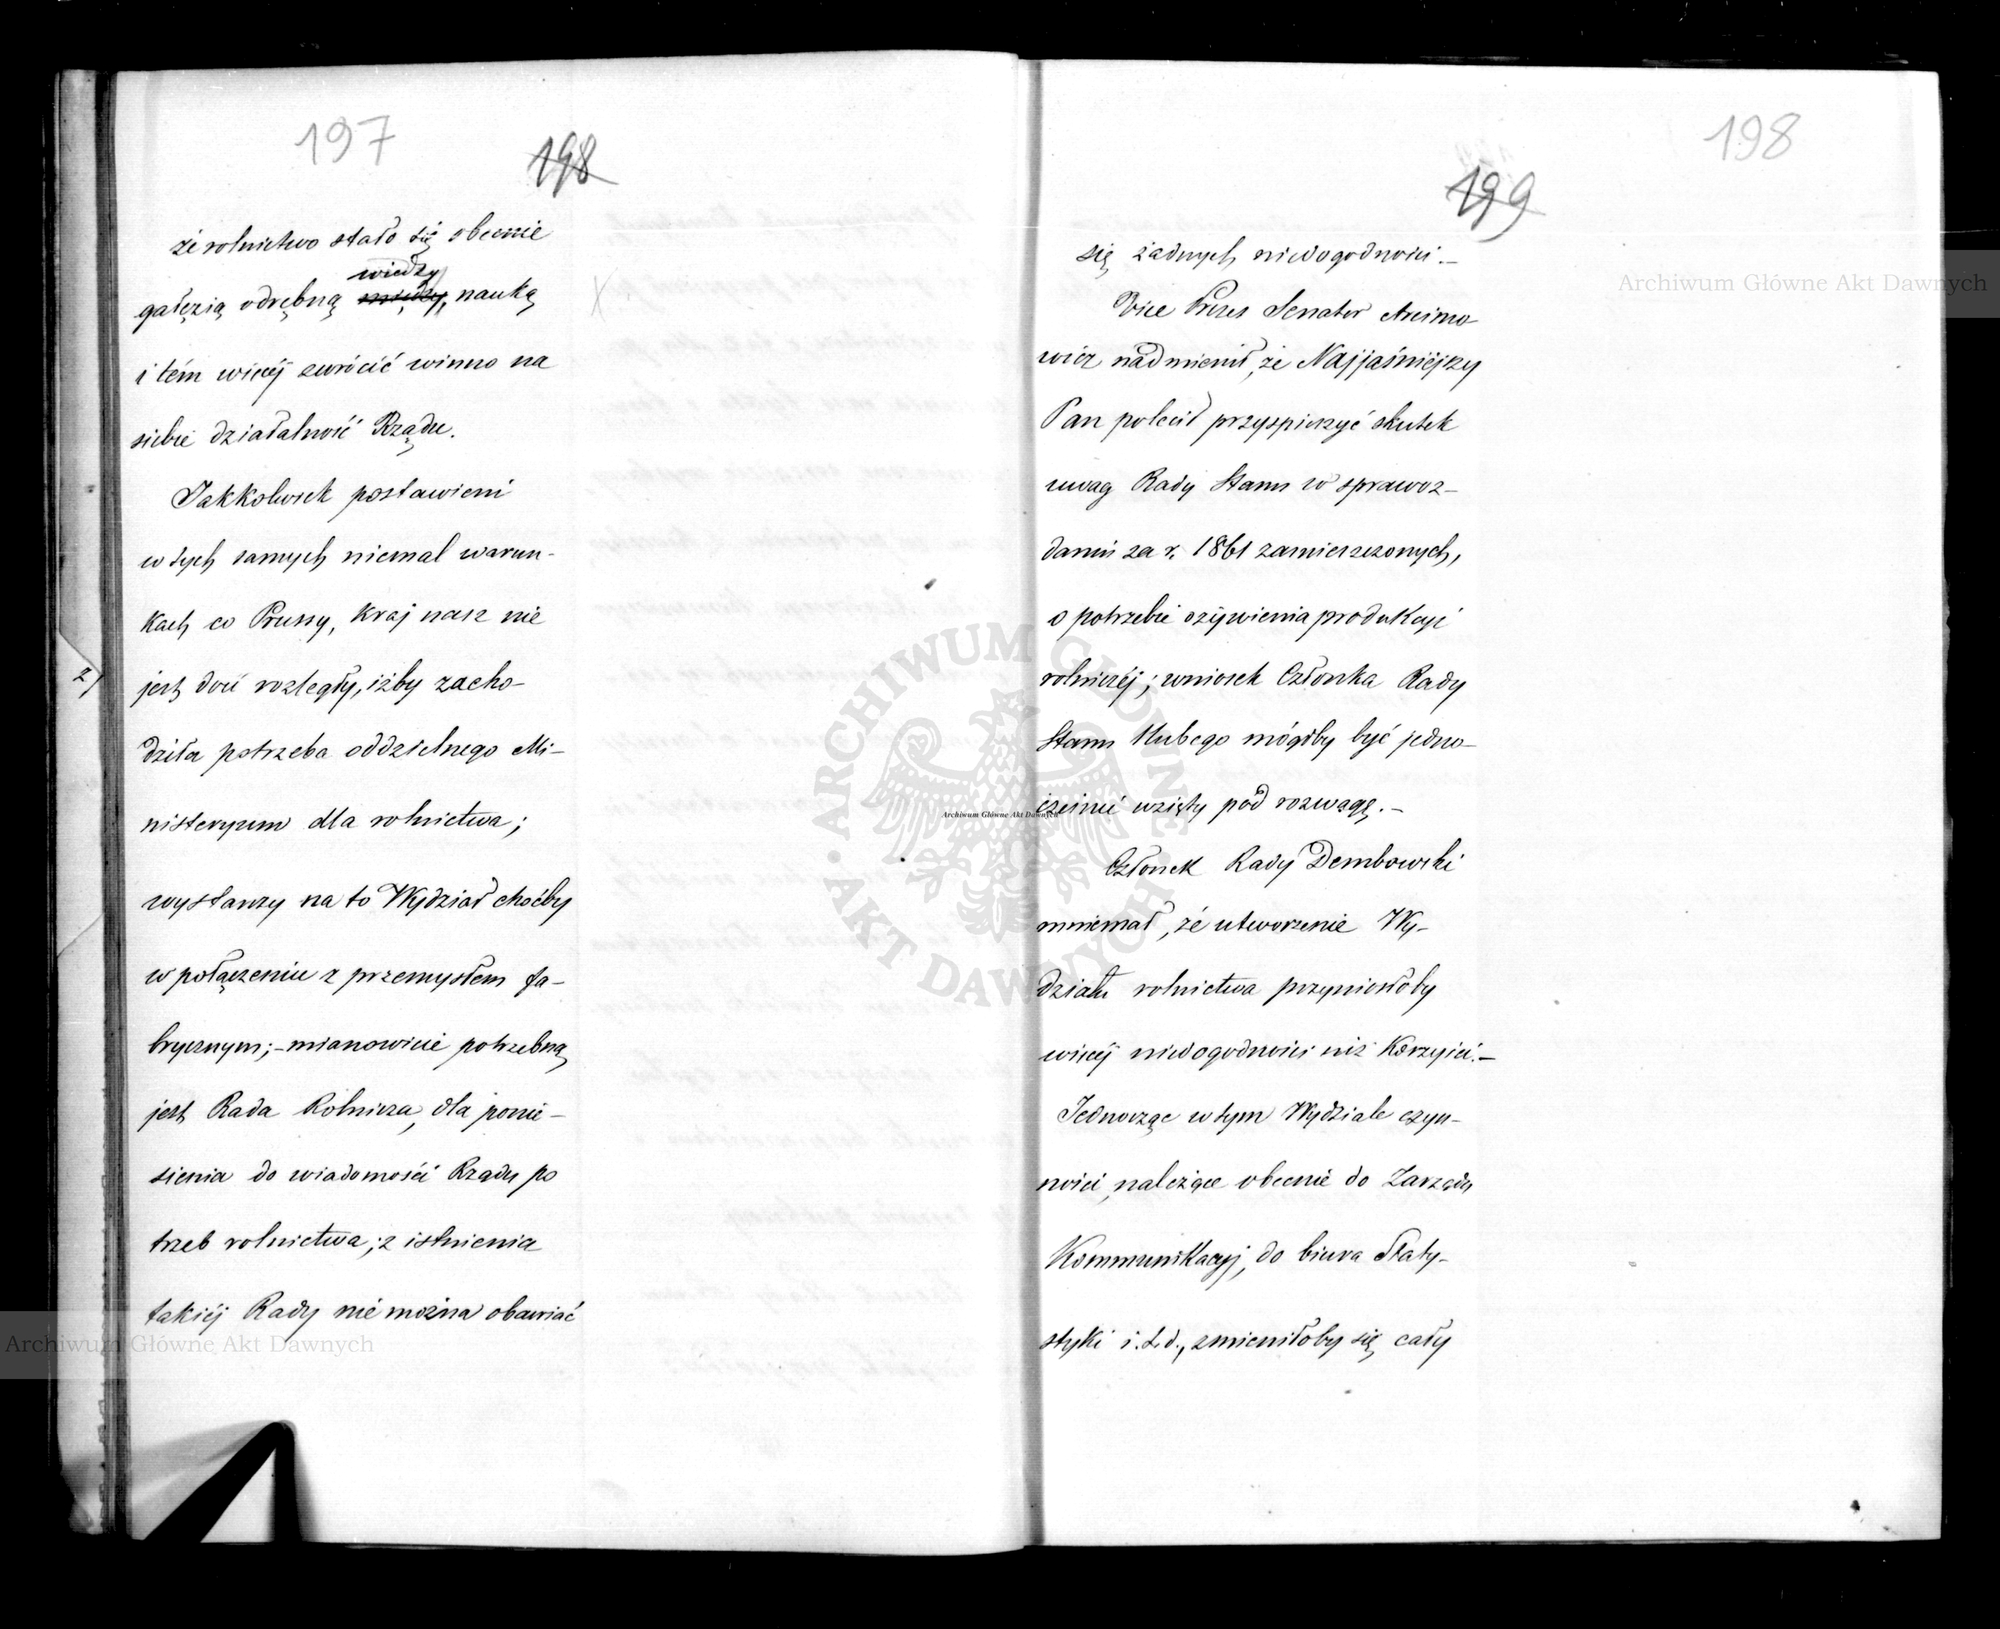 197
198
że rolnictwo stało się obecnie
wiedzy
gałęzią odrębną między, nauką
i tém więcéj zwrócić winno na
siebie działalność Rządu.
Jakkolwiek postawieni
w tych samych niemal warun-
kach co Prussy, Kraj nasz nie
jest dość rozległy, iżby zacho-
dziła potrzeba oddzielnego Mi-
nisteryum dla rolnictwa;
wystarczy na to Wydział choćby
w połączeniu z przemysłem fa-
brycznym; - mianowicie potrzebną
jest Rada Rolnicza, dla ponie-
sienia do wiadomości Rządu po
trzeb rolnictwa; z istnienia
takiéj Rady nie można obawiać
2)
198
199
się żadnych niedogodności. -
Vice Prezes Senator Arcimo
wicz nadmienił, że Najjaśniejszy
Pan polecił przyspieszyć skutek
uwag Rady Stanu w sprawoz-
daniu za r. 1861 zamieszczonych,
o potrzebie ożywienia produkcyi
rolniczéj; wniosek Członka Rady
Stanu Hubego mógłby być jedno-
cześnie wzięty pod rozwagę. -
Członek Rady Dembowski
mniemał, że utworzenie Wy-
działu rolnictwa przyniosłoby
więcéj niedogodności niż Korzyści. -
Jednocząc w tym Wydziale czyn-
ności, należące obecnie do Zarządu
Kommunikacyj, do biura Staty-
styki i. t. d., zmieniłoby się cały
Archiwum Główne Akt Dawnych
Archiwum Główne Akt Dawnych
Archiwum Główne Akt Dawnych
ARCHIWUM GŁÓWNE AKT DAWNYCH